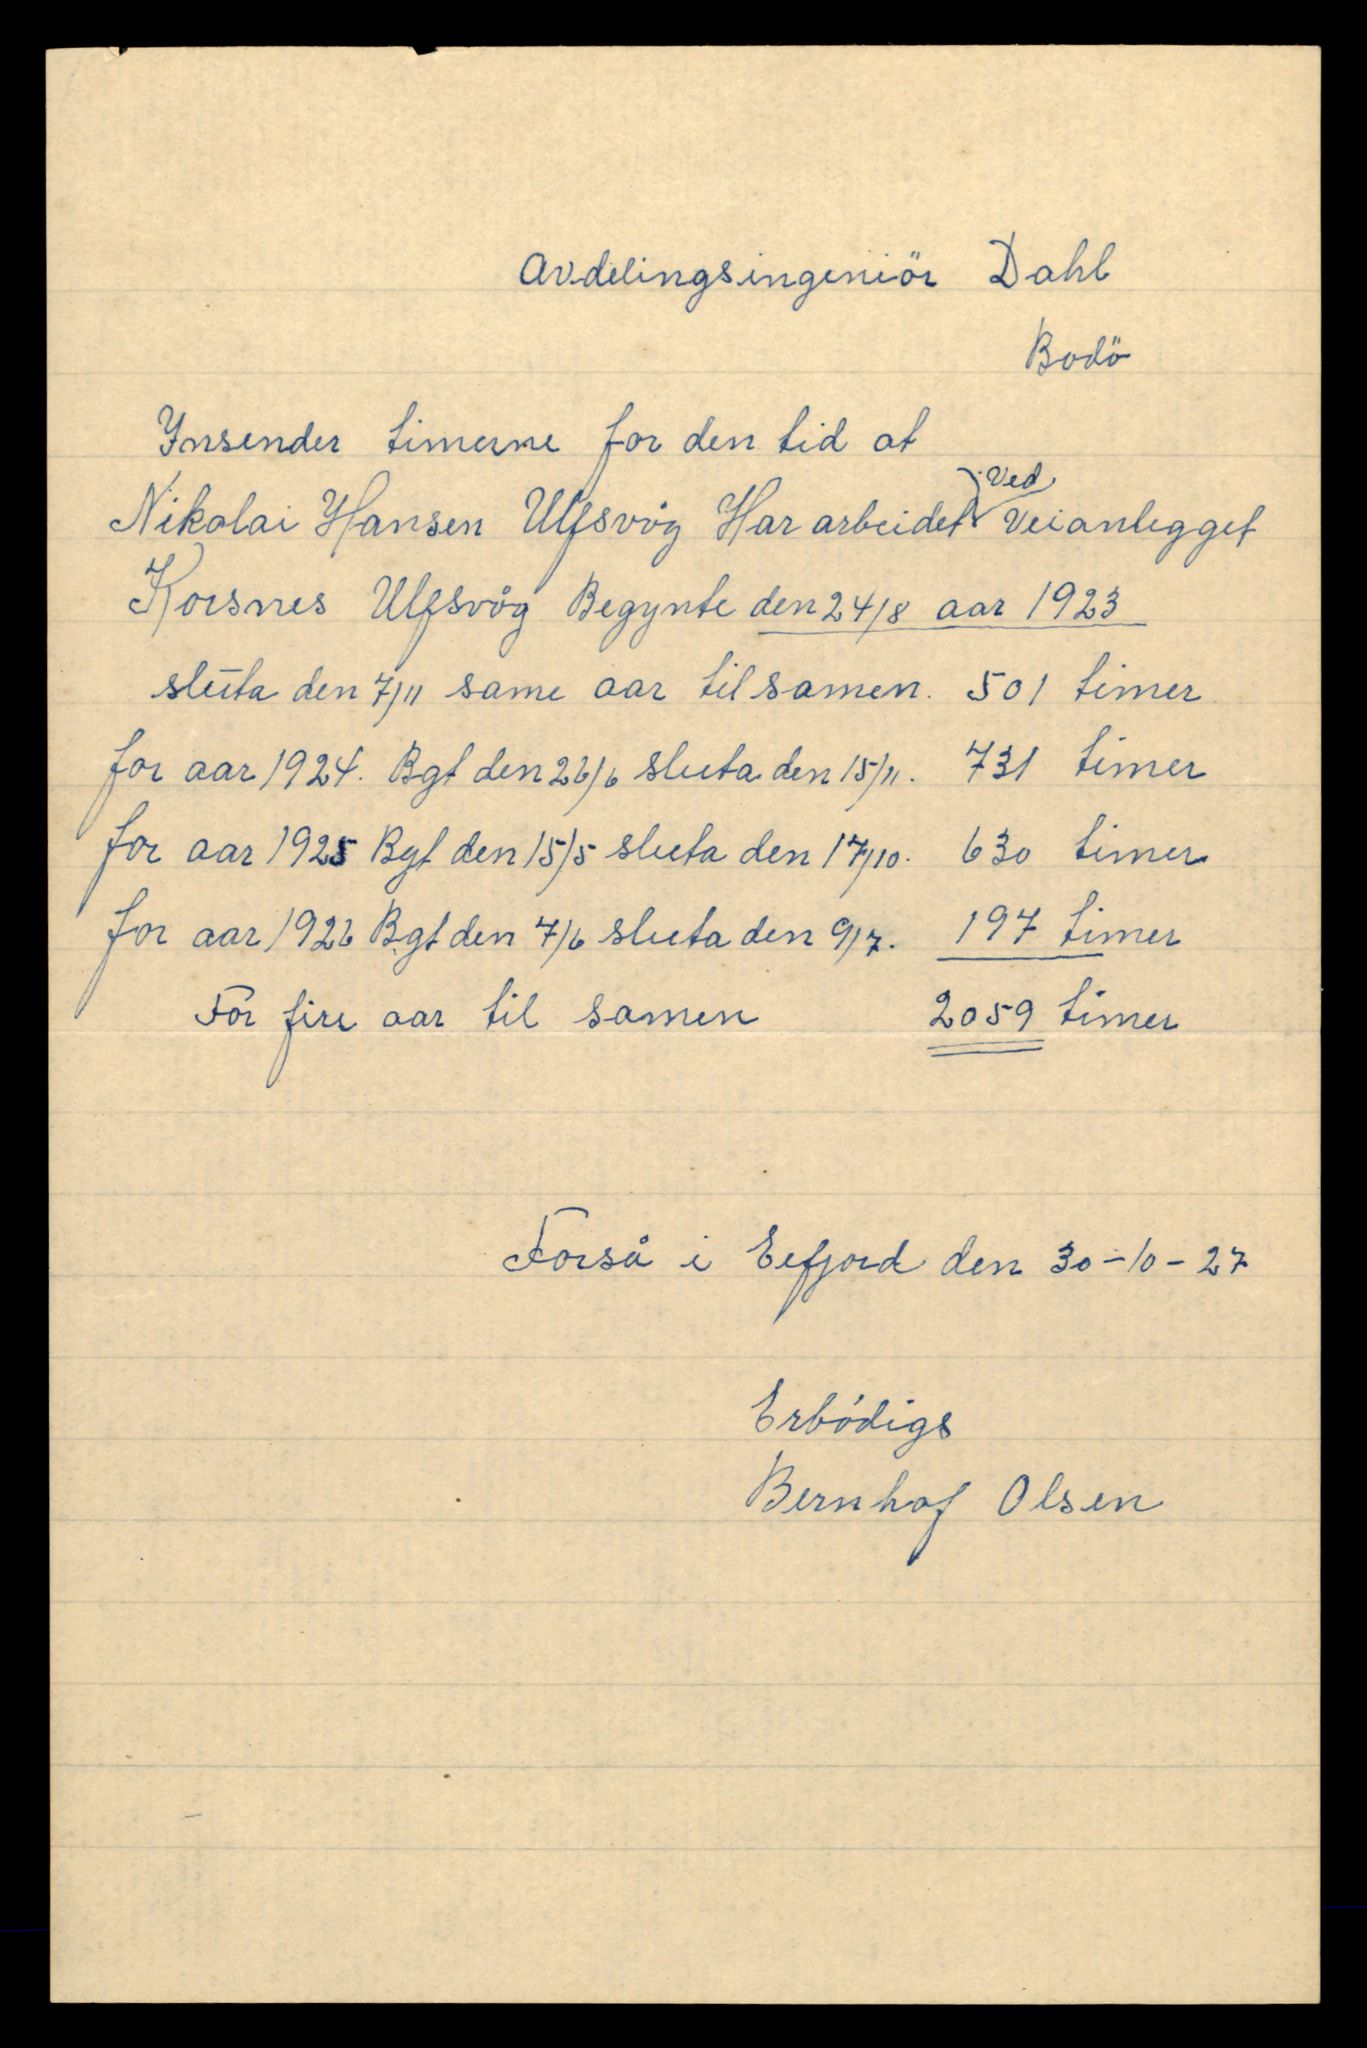 Avdelingsingeniör Dahl
Bodö
Insender timerne for den tid at
Nikolai Hansen Ulfsvåg Har arbeidet Ved Veianlegget
Korsnes Ulfsvåg Begynte den 24/8 aar 1923
sluta den 7/11 same aar tilsamen. 501 timer
for aar 1924. Bgt den 26/6 sluta den 15/11. 731 timer
for aar 1925 Bgt den 15/5 sluta den 17/10. 630 timer
for aar 1926 Bgt den 7/6 sluta den 9/7. 197 timer
For fire aar til samen 2059 timer
Forså i Eefjord den 30-10-27
Erbödigs
Bernhof Olsen